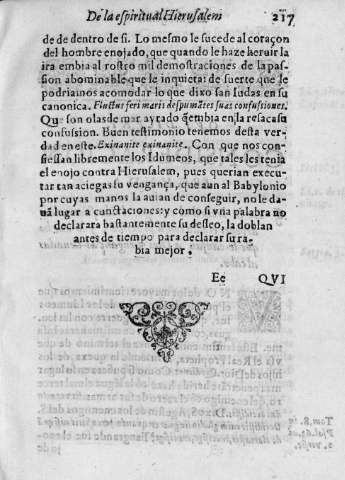 De la espiritual Hierusalem 217
de de dentro de si. Lo mesmo le sucede al coraçon
del hombre enojado, que quando le haze heruir la
ira embia al rostro mil demostraciones de la pas-
sion abominable que le inquieta: de suerte que le
podriamos acomodar lo que dixo san Iudas en su
canonica. Fluctus feri maris despumātes suas confusiones.
Que son olas de mar ayrado q̄ embia en la resaca su
confusion. Buen testimonio tenemos desta ver-
dad en este. Exinanite exinanite. Con que nos con-
fiessan libremente los Idumeos, que tales les tenia
el enojo contra Hierusalem, pues querian execu-
tar tan a ciegas su vengança, que aun al Babylonio
por cuyas manos la auian de conseguir, no le da-
uā lugar a cunctaciones: y como si vna palabra no
declarara bastantemente su desseo, la doblan
antes de tiempo para declarar su ra-
bia mejor.
Ee QVI